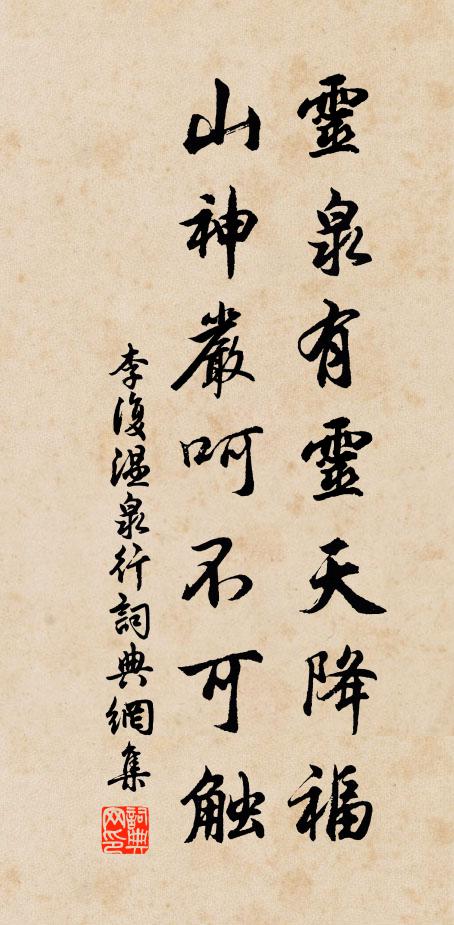 靈泉有靈天降福
山神嚴呵不可触
李復温泉行詞典網集
詞典網印